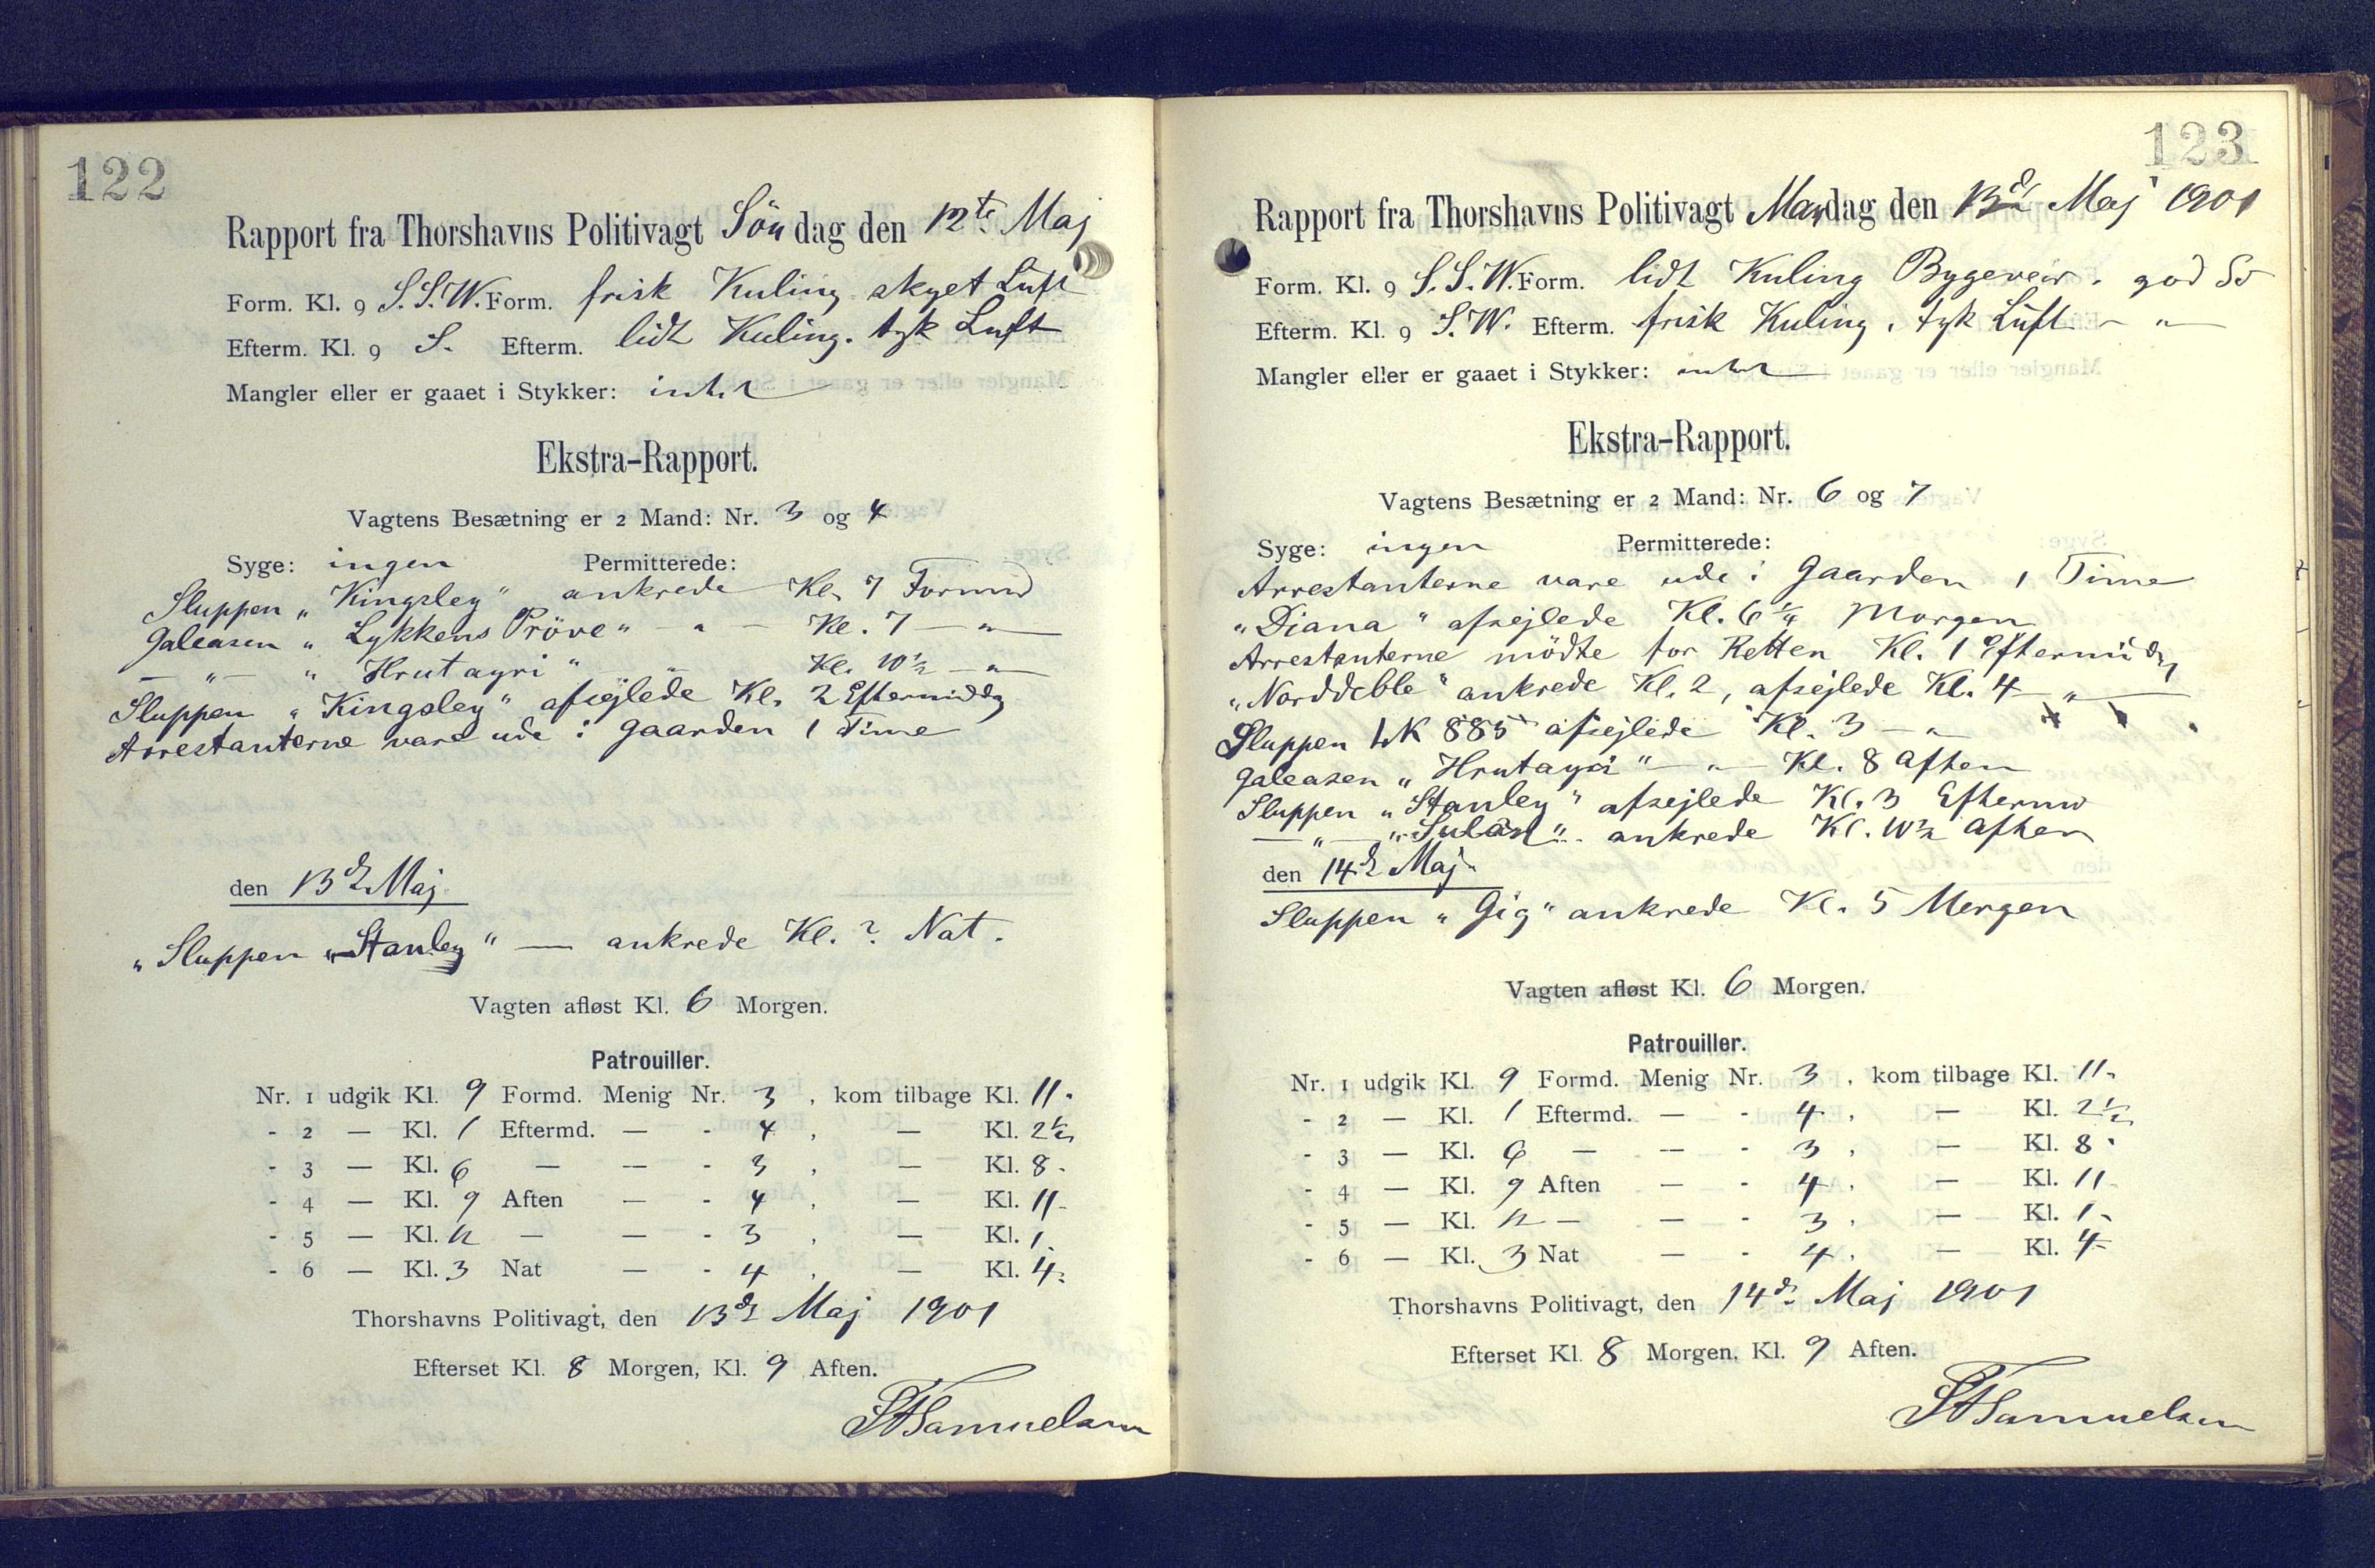 122
Rapport fra Thorshavns Politivagt Søndag den 12te Maj
Form. Kl. 9 S.S.W. Form. frisk Kuling skyet Luft
Efterm. Kl. 9 S. Efterm. lidt Kuling. tyk Luft
Mangler eller er gaaet i Stykker: intet
Ekstra-Rapport.
Vagtens Besætning er 2 Mand: Nr. 3 og 4
Syge: ingen Permitterede:
Sluppen „Kingsley“ ankrede Kl. 7 Formd
Galeasen „Lykkens Pröve“ — „ — Kl. 7 — „ —
— „ — „Hrutayri“ — „ — Kl. 10½ — „ —
Sluppen „Kingsley“ afsejlede Kl. 2 Eftermiddg
Arrestanterne vare ude i Gaarden 1 Time
den 13de Maj.
„Sluppen „Stanley“ — ankrede Kl. ? Nat.
Vagten afløst Kl. 6 Morgen.
Patrouiller.
Nr. 1 udgik Kl. 9 Formd. Menig Nr. 3, kom tilbage Kl. 11.
- 2 — Kl. 1 Eftermd. — - 4, — Kl. 2½
- 3 — Kl. 6 — — - 3, — Kl. 8.
- 4 — Kl. 9 Aften — - 4, — Kl. 11-
- 5 — Kl. 12 — — - 3, — Kl. 1.
- 6 — Kl. 3 Nat — - 4, — Kl. 4.
Thorshavns Politivagt, den 13de Maj 1901
Efterset Kl. 8 Morgen, Kl. 9 Aften.
Samuelsen
123
Rapport fra Thorshavns Politivagt Mandag den 13de Maj 1901
Form. Kl. 9 S.S.W. Form. lidt Kuling Bygeveir. god Sö
Efterm. Kl. 9 S.W. Efterm. frisk Kuling, tyk Luft — „ —
Mangler eller er gaaet i Stykker: intet
Ekstra-Rapport.
Vagtens Besætning er 2 Mand: Nr. 6 og 7
Syge: ingen Permitterede:
Arrestanterne vare ude i Gaarden 1 Time
„Diana“ afsejlede Kl. 6¼ Morgen
Arrestanterne mödte for Retten Kl. 1 Eftermiddg
„Norddeble“ ankrede Kl. 2, afsejlede Kl. 4 — „ —
Sluppen LK 885 afsejlede Kl. 3 — „ —
Galeasen „Hrutayri“ — „ — Kl. 8 Aften
Sluppen „Stanley“ afsejlede Kl. 3 Eftermd
— „ — ankrede Kl. 10½ Aften
den 14de Maj.
Sluppen „Gig“ ankrede Kl. 5 Morgen
Vagten afløst Kl. 6 Morgen.
Patrouiller.
Nr. 1 udgik Kl. 9 Formd. Menig Nr. 3, kom tilbage Kl. 11.
- 2 — Kl. 1 Eftermd. — - 4, — Kl. 2½
- 3 — Kl. 6 — — - 3, — Kl. 8.
- 4 — Kl. 9 Aften — - 4, — Kl. 11-
- 5 — Kl. 12 — — - 3, — Kl. 1.
- 6 — Kl. 3 Nat — - 4, — Kl. 4-
Thorshavns Politivagt, den 14de Maj 1901
Efterset Kl. 8 Morgen, Kl. 9 Aften.
Samuelsen